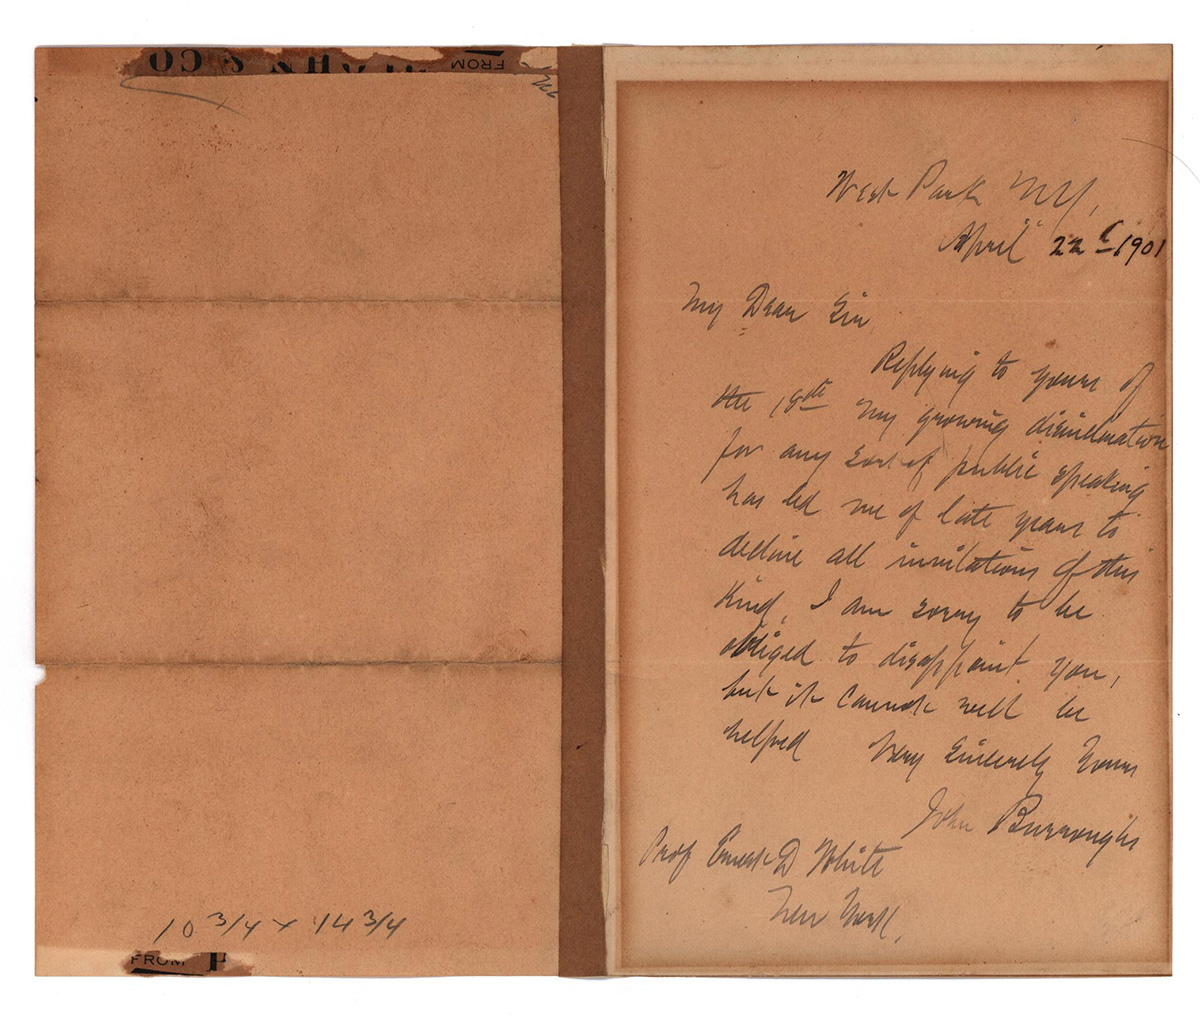 FROM
& CO
10 3/4 x 14 3/4
FROM
West Park N Y,
April 22d 1901
My Dear Sir
Replying to yours of
the 18th my growing disinclination
for any sort of public speaking
has led me of late years to
decline all invitations of this
kind, I am sorry to be
obliged to disappoint you,
but it cannot well be
helped Very Sincerely Yours
John Burroughs
Prof Ernest D White
New York.